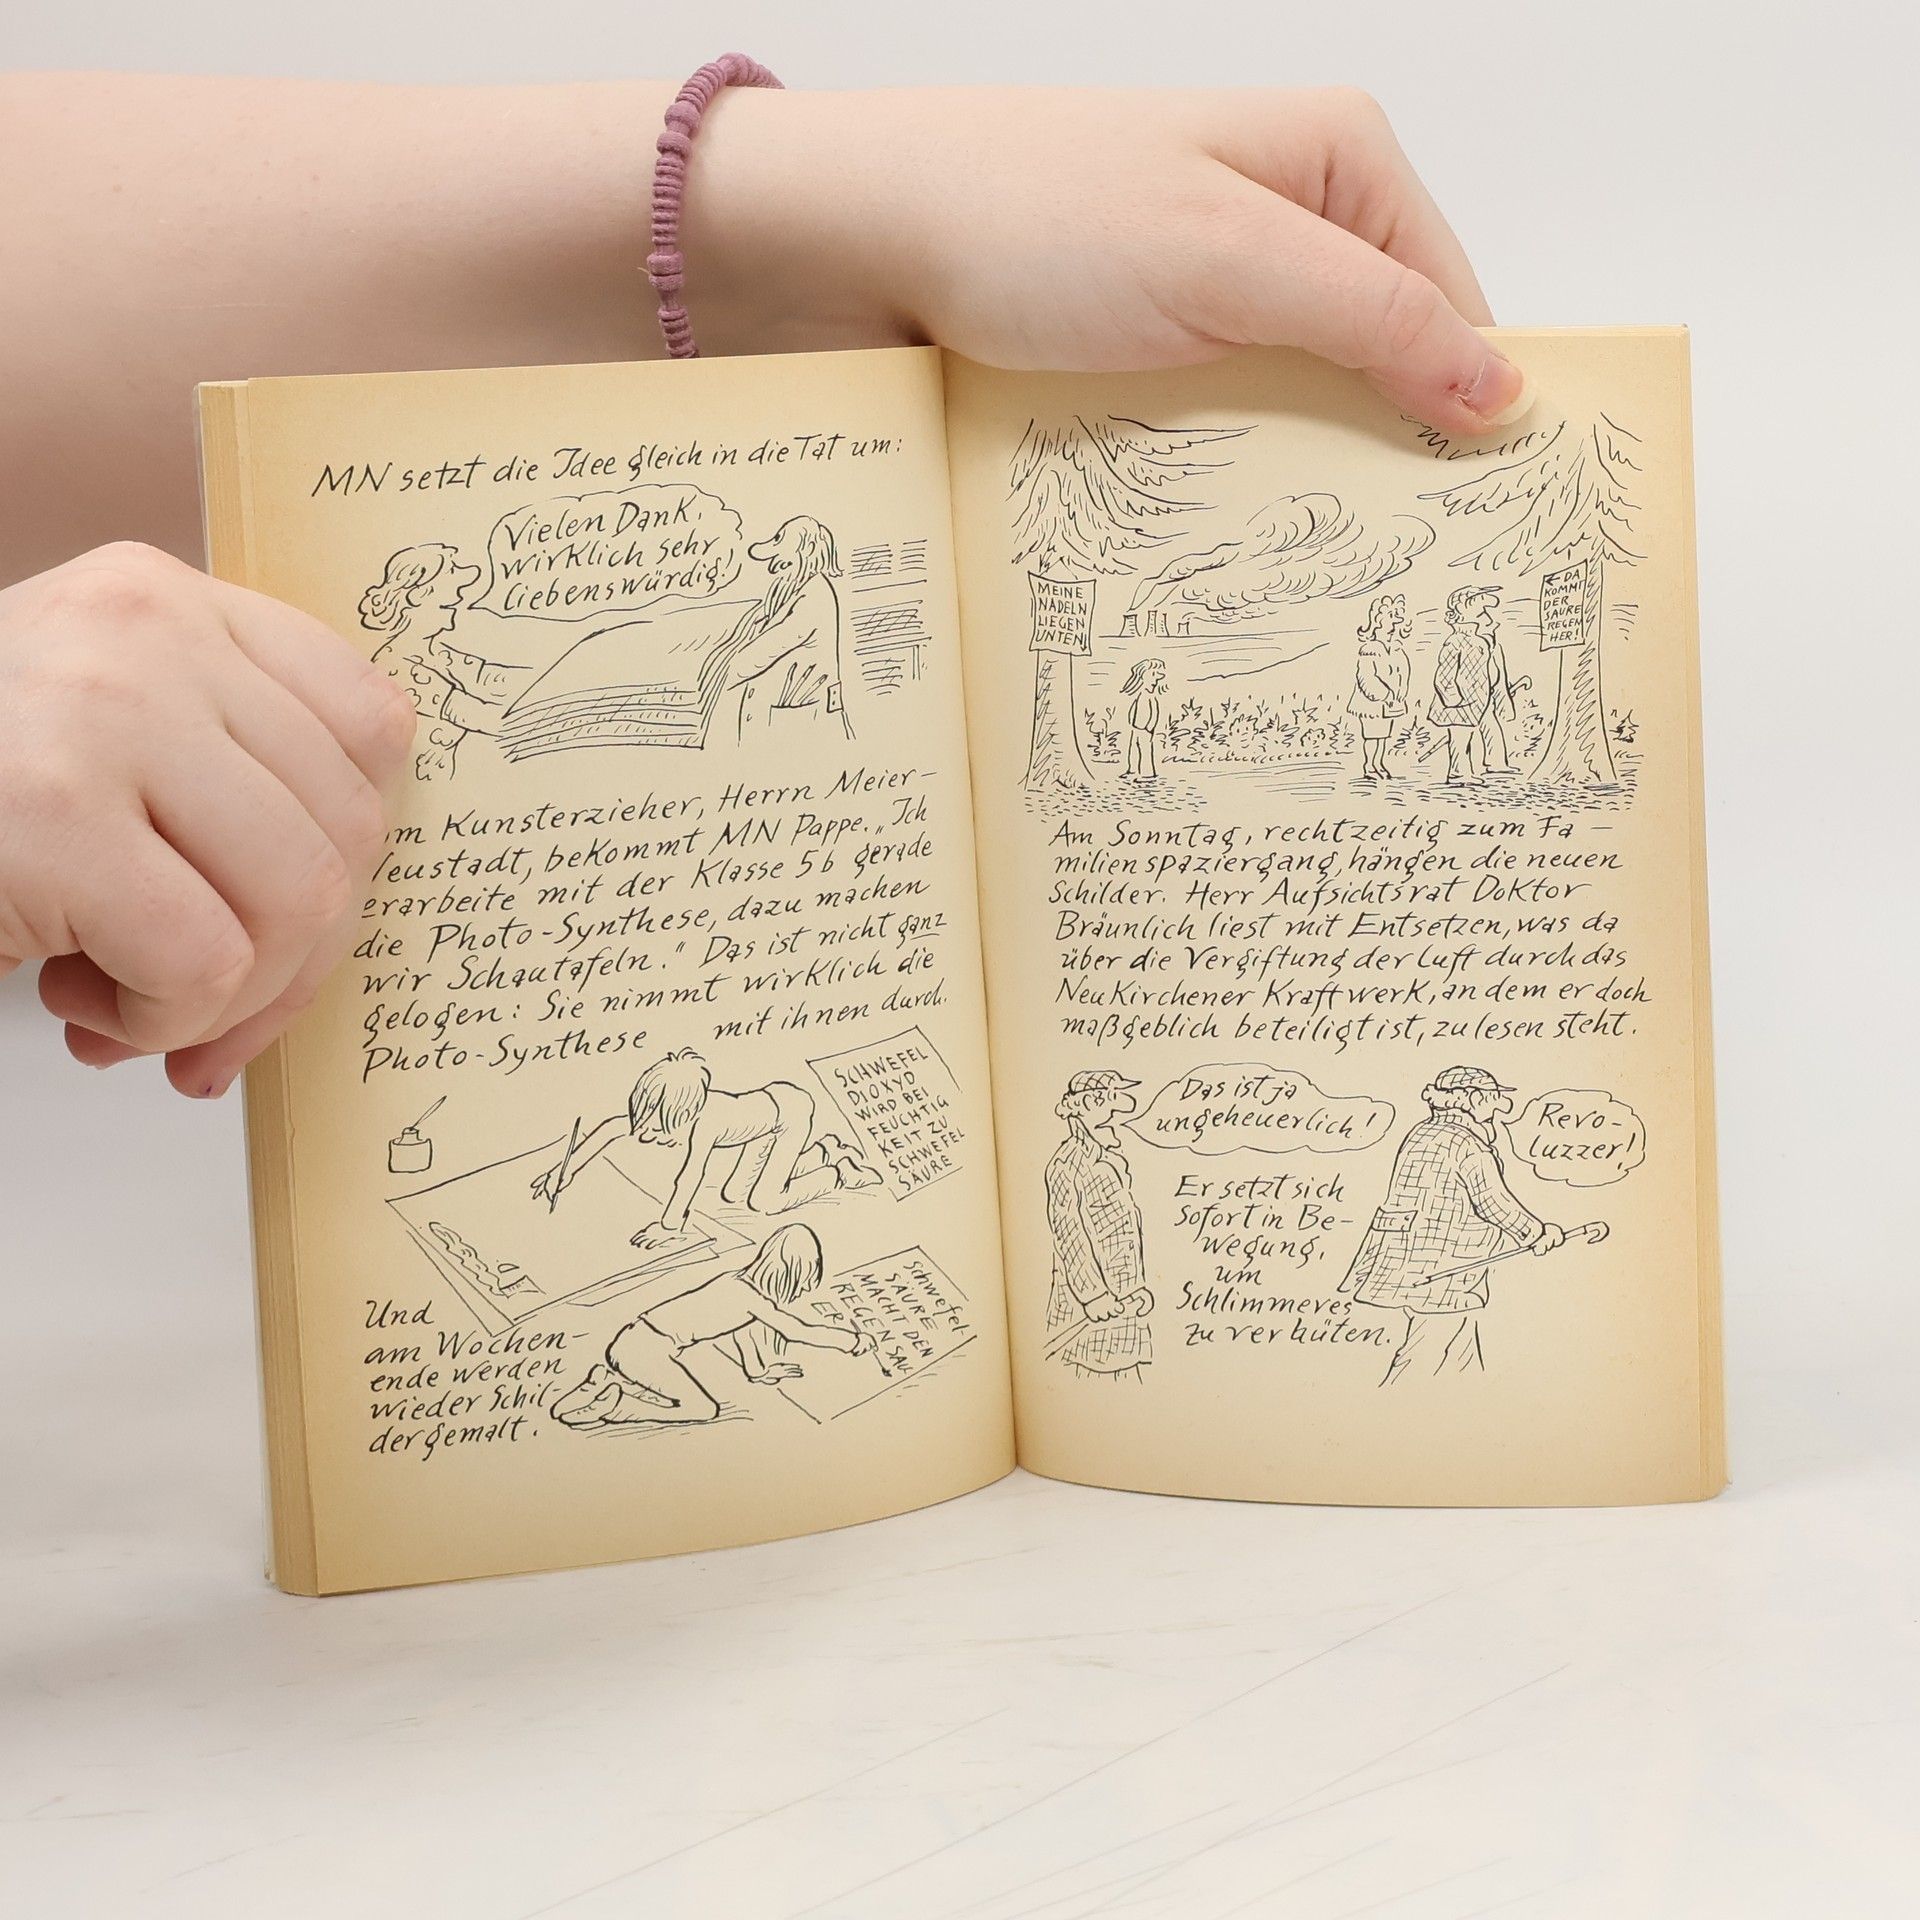 MN setzt die Idee gleich in die Tat um:
Vielen Dank,
wirklich sehr
liebenswürdig!
m Kunsterzieher, Herrn Meier-
eustadt, bekommt MN Pappe. „Ich
erarbeite mit der Klasse 5b gerade
die Photo-Synthese, dazu machen
wir Schautafeln." Das ist nicht ganz
gelogen: Sie nimmt wirklich die
Photo-Synthese mit ihnen durch.
SCHWEFEL
DIOXYD
WIRD BEI
FEUCHTIG
KEIT ZU
SCHWEFEL
SÄURE
Schwefel-
SÄURE
MACHT DEN
REGEN SAU
ER
Und
am Wochen-
ende werden
wieder Schil-
der gemalt.
MEINE
NADELN
LIEGEN
UNTEN!
← DA
KOMMT
DER
SAURE
REGEN
HER!
Am Sonntag, rechtzeitig zum Fa-
milienspaziergang, hängen die neuen
Schilder. Herr Aufsichtsrat Doktor
Bräunlich liest mit Entsetzen, was da
über die Vergiftung der Luft durch das
Neukirchener Kraftwerk, an dem er doch
maßgeblich beteiligt ist, zu lesen steht.
Das ist ja
ungeheuerlich!
Revo-
luzzer!
Er setzt sich
sofort in Be-
wegung,
um
Schlimmeres
zu verhüten.